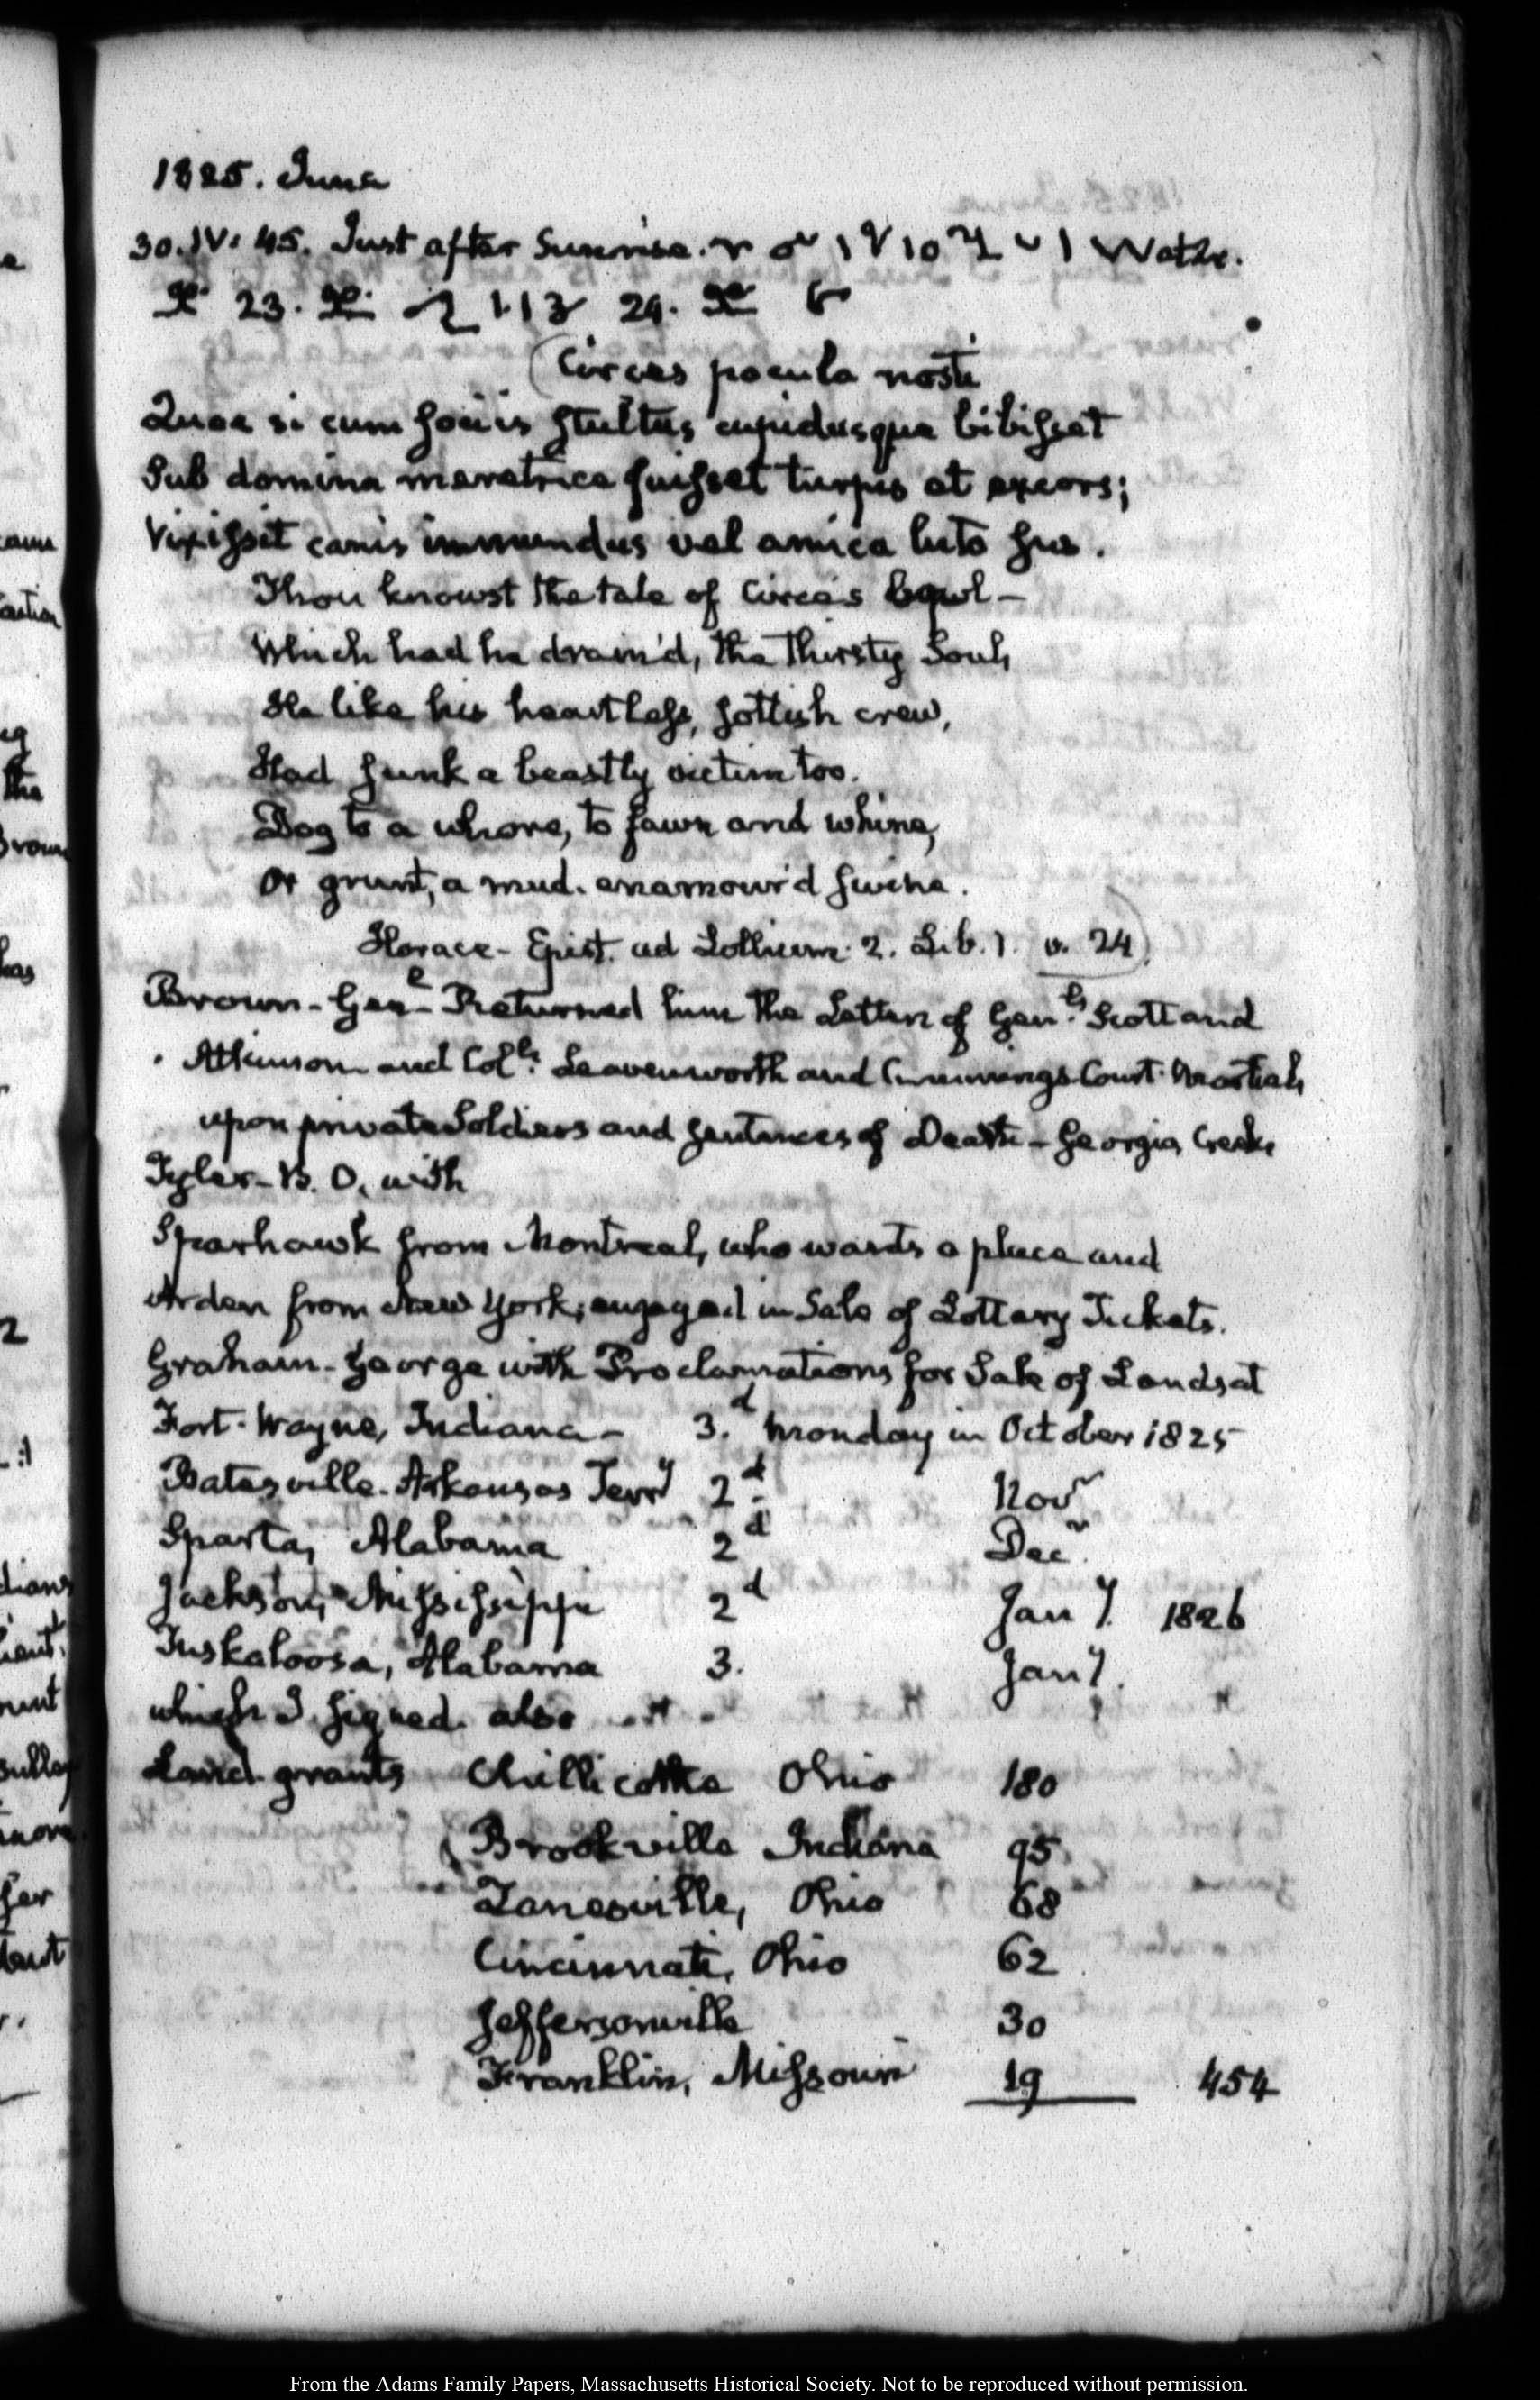 1825. June
30. IV: 45. Just after Sunrise.
23. 24.
(Circes pocula nosti
Quae si cum sociis stultus cupidusque bibisset
Sub domina meretrice fuisset turpis et excors;
Vixisset canis immundus vel amica luto sus.
Thou knowst the tale of Circe's bowl—
Which had he drain'd, the thirsty Soul,
He like his heartless, sottish crew,
Had sunk a beastly victim too.
Dog to a whore, to fawn and whine,
Or grunt, a mud-enamour'd swine.
Horace- Epist. ad Lollium. 2. Lib. 1. v. 24)
Brown- Genl- Returned him the Letters of Genls. Scott and
Atkinson and Colls. Leavenworth and Cummings Court-Martial,
upon private Soldiers and Sentences of Death- Georgia, Creeks
Tyler- B. O. with
Sparhawk from Montreal, who wants a place and
Arden from New York; engaged in Sale of Lottery Tickets.
Graham- George with Proclamations for Sale of Lands at
Fort-Wayne, Indiana- 3.d Monday in October 1825
Batesville- Arkansas Terry 2d. Novr
Sparta, Alabama 2d Decr.
Jackson, Mississippi 2d Jany. 1826
Tuskaloosa, Alabama 3. Jany.
which I signed. also
Land-grants Chillicothe Ohio 180
Brookville Indiana 95
Zanesville, Ohio 68
Cincinnati, Ohio 62
Jeffersonville 30
Franklin, Missouri 19 454
From the Adams Family Papers, Massachusetts Historical Society. Not to be reproduced without permission.